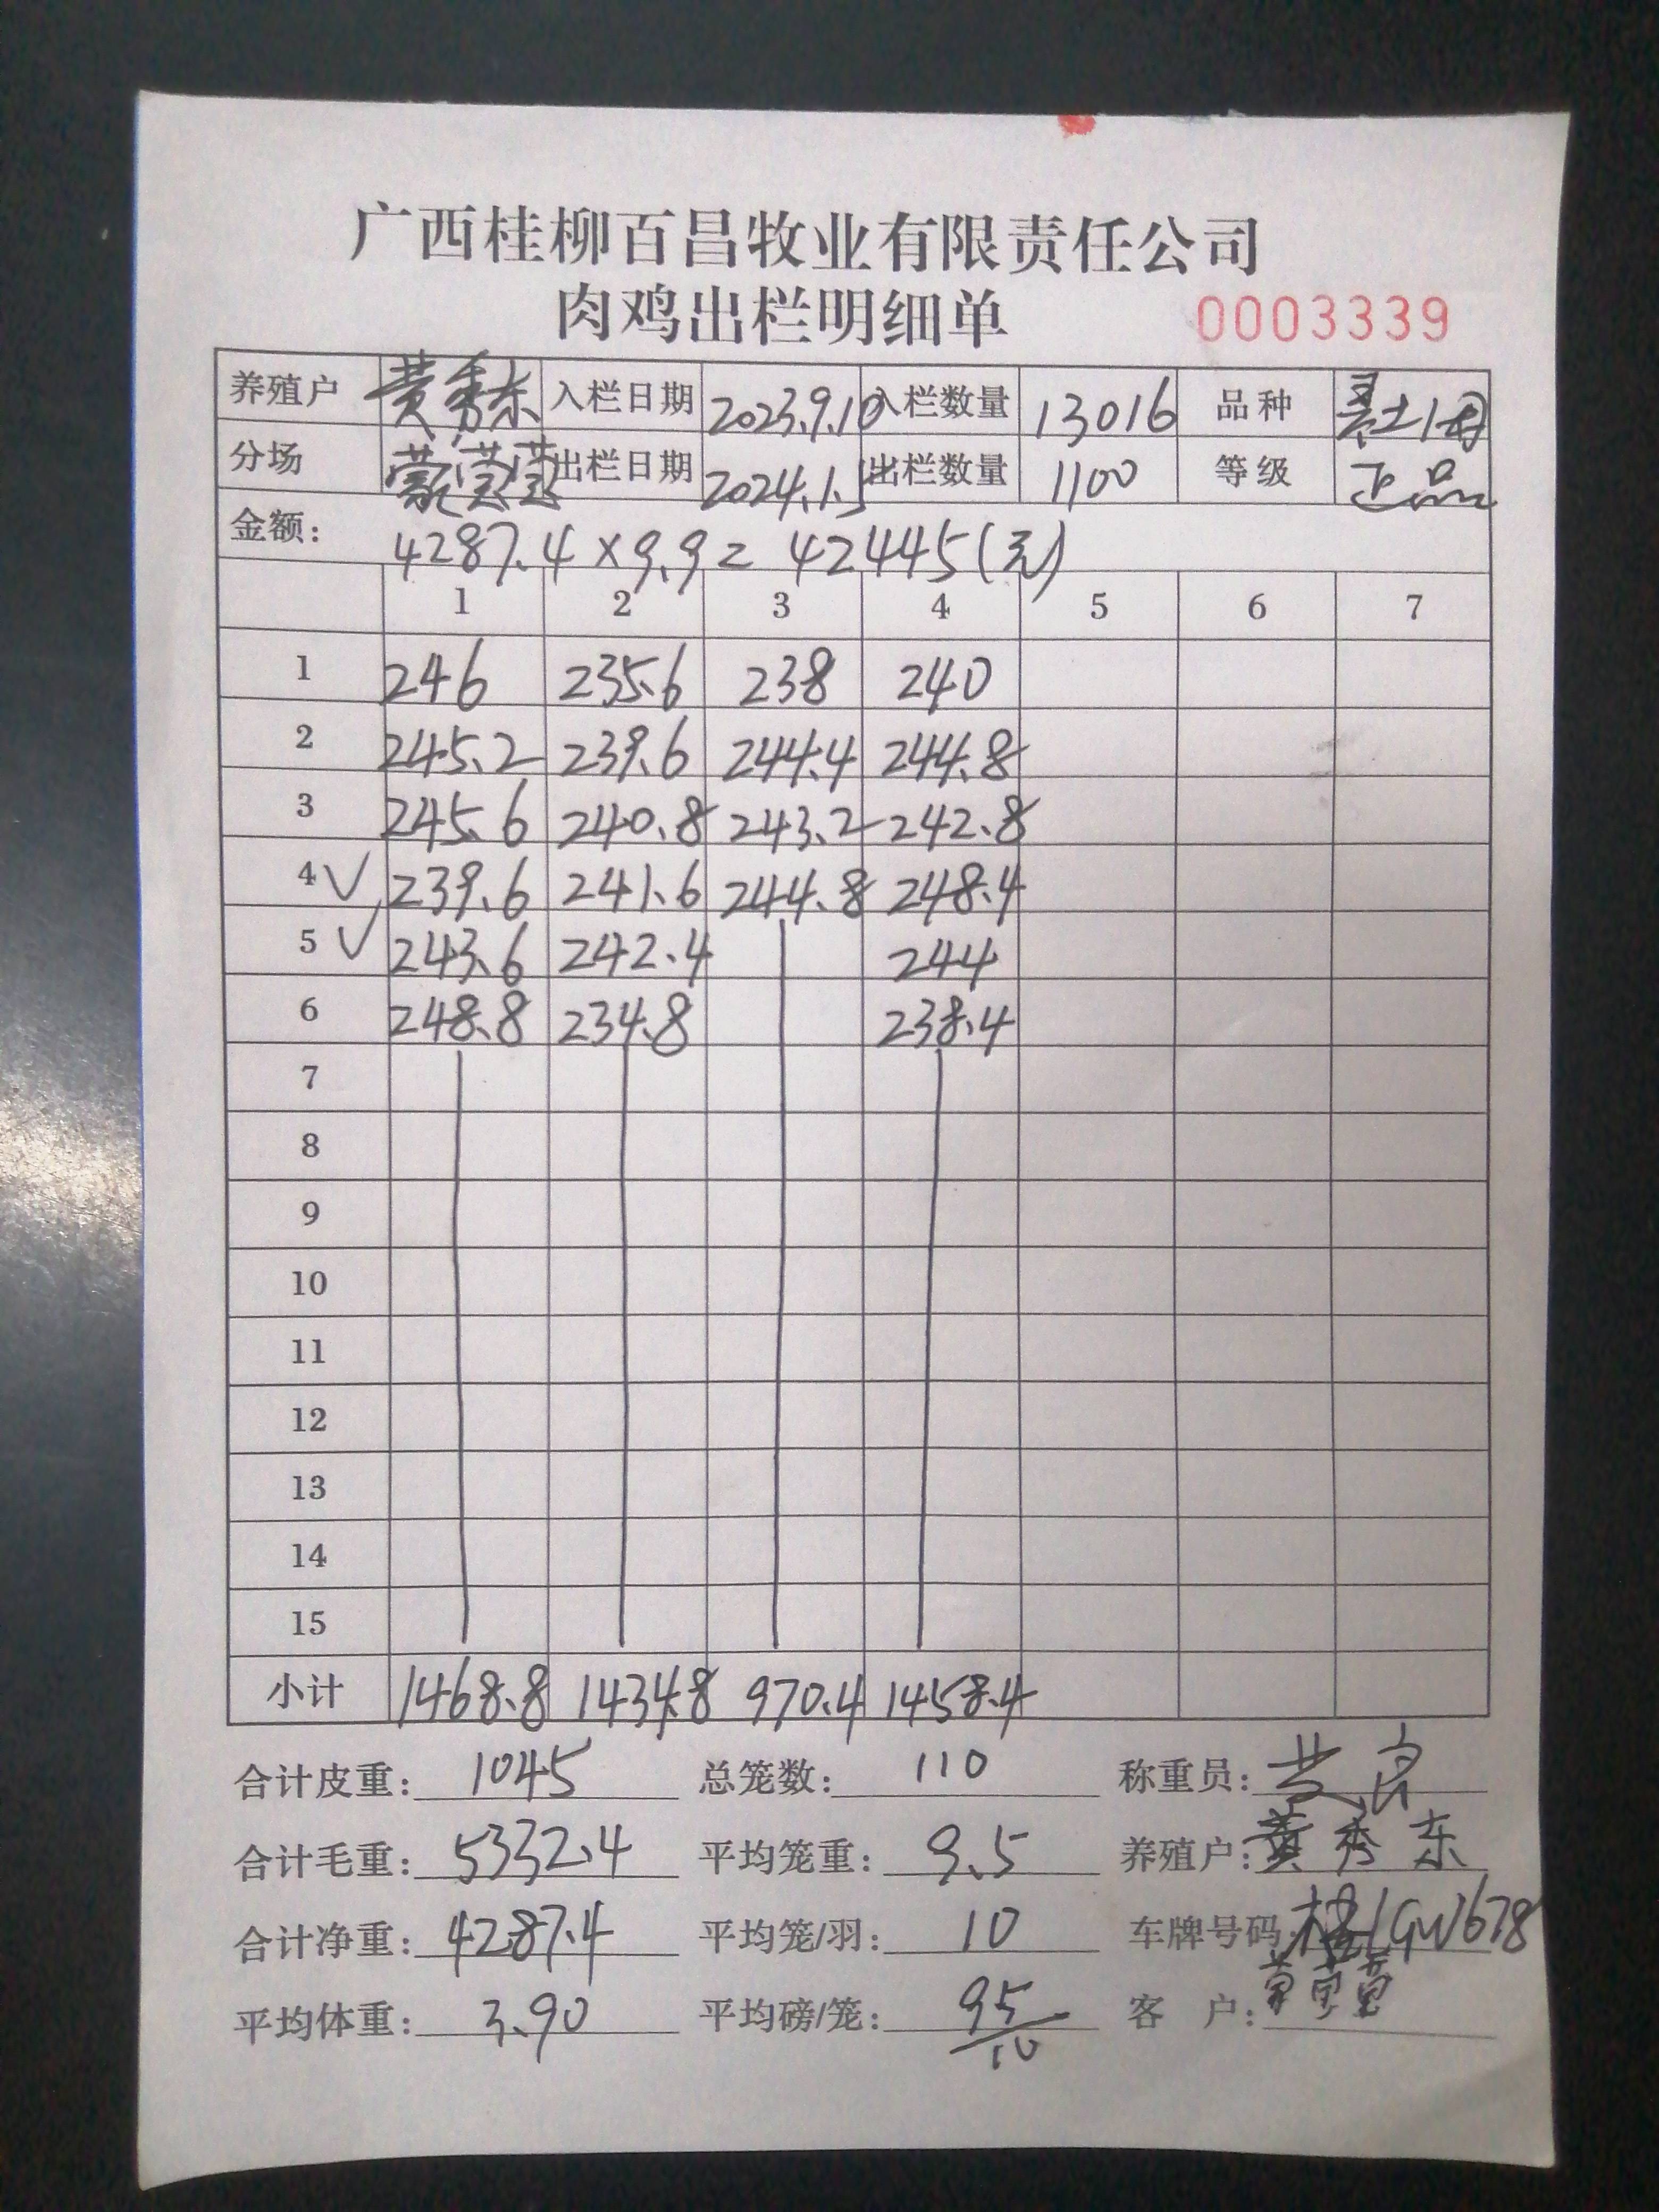 广西桂柳百昌牧业有限责任公司
肉鸡出栏明细单 0003339
养殖户 黄秀东 入栏日期 2023.9.10 入栏数量 13016 品种
分场 出栏日期 2024.1.5 出栏数量 1100 等级 正品
金额: 4287.4×9.9=42445(元)
1 2 3 4 5 6 7
1 246 235.6 238 240
2 245.2 239.6 244.4 244.8
3 245.6 240.8 243.2 242.8
4 √ 239.6 241.6 244.8 248.4
5 √ 243.6 242.4 244
6 248.8 234.8 238.4
7
8
9
10
11
12
13
14
15
小计 1468.8 1434.8 970.4 1458.4
合计皮重: 1045 总笼数: 110 称重员:
合计毛重: 5332.4 平均笼重: 9.5 养殖户: 黄秀东
合计净重: 4287.4 平均笼/羽: 10 车牌号码
平均体重: 3.90 平均磅/笼: 95/10 客 户: